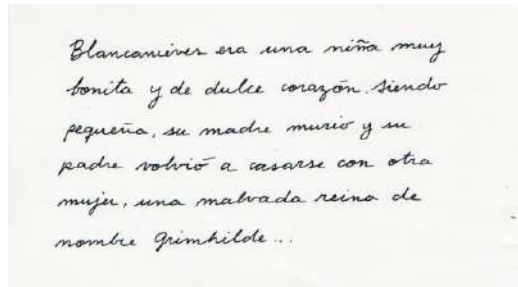 Blancanieves era una niña muy
bonita y de dulce corazón. Siendo
pequeña, su madre murio y su
padre volvió a casarse con otra
mujer, una malvada reina de
nombre Grimhilde...